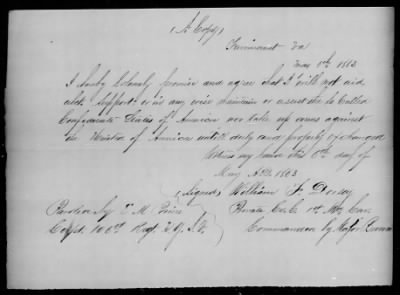 (A Copy)
Va
May 8th 1863
I hereby solemnly promise and agree that I will not aid
abet, support or in any wise maintain or assert the so Called
Confederate States of America nor take up arms against
the United States of America until duly and properly exchanged
Witness my hand this 8th day of
May A.D. 1863
(Signed) William F. Dorsey
Private Co. C 1st Md Cav.
Commanded by Major
Capt. 106th Regt N.Y.S.V.